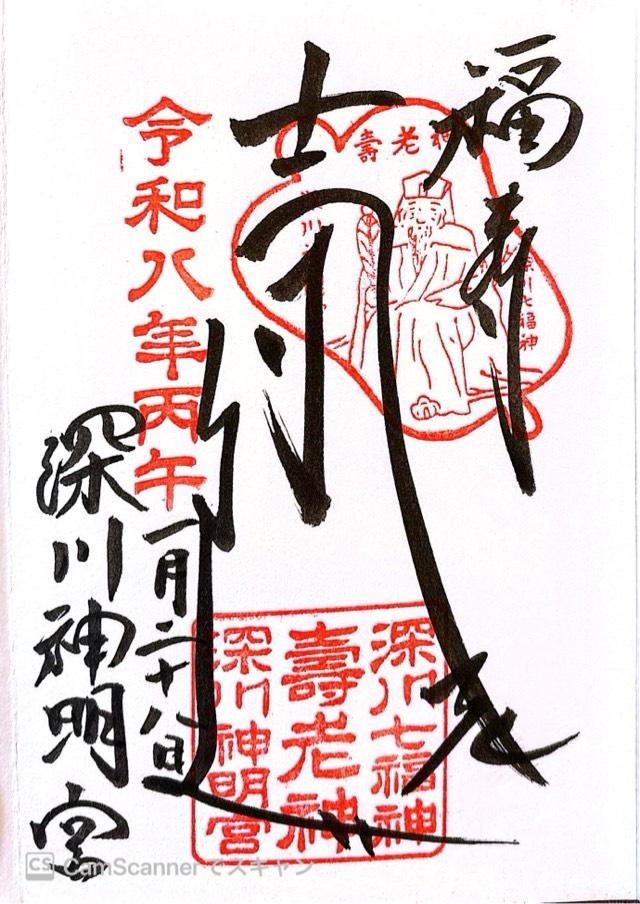 福寿
壽老神
深川七福神
深川七福神
壽老神
深川神明宮
令和八年丙午
一月二十八日
深川神明宮
CS CamScannerでスキャン